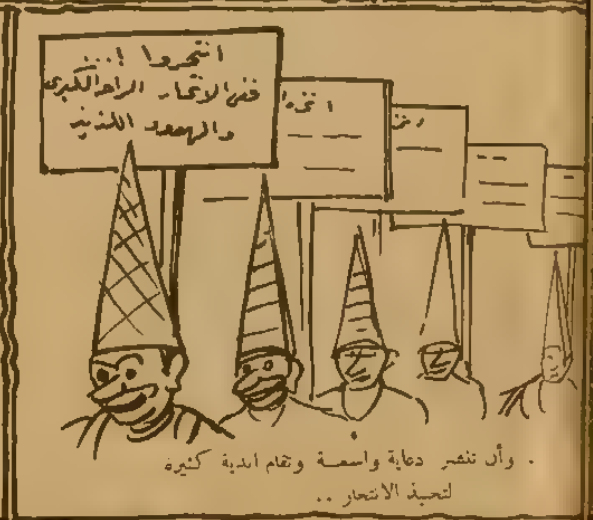 انتحروا !...
ففي الانتحار الراحة الكبرى
والهمود اللذيذ
انتحروا
. وأن تنشر دعاية واسعة وتقام اندية كثيرة
لتحبيذ الانتحار ..